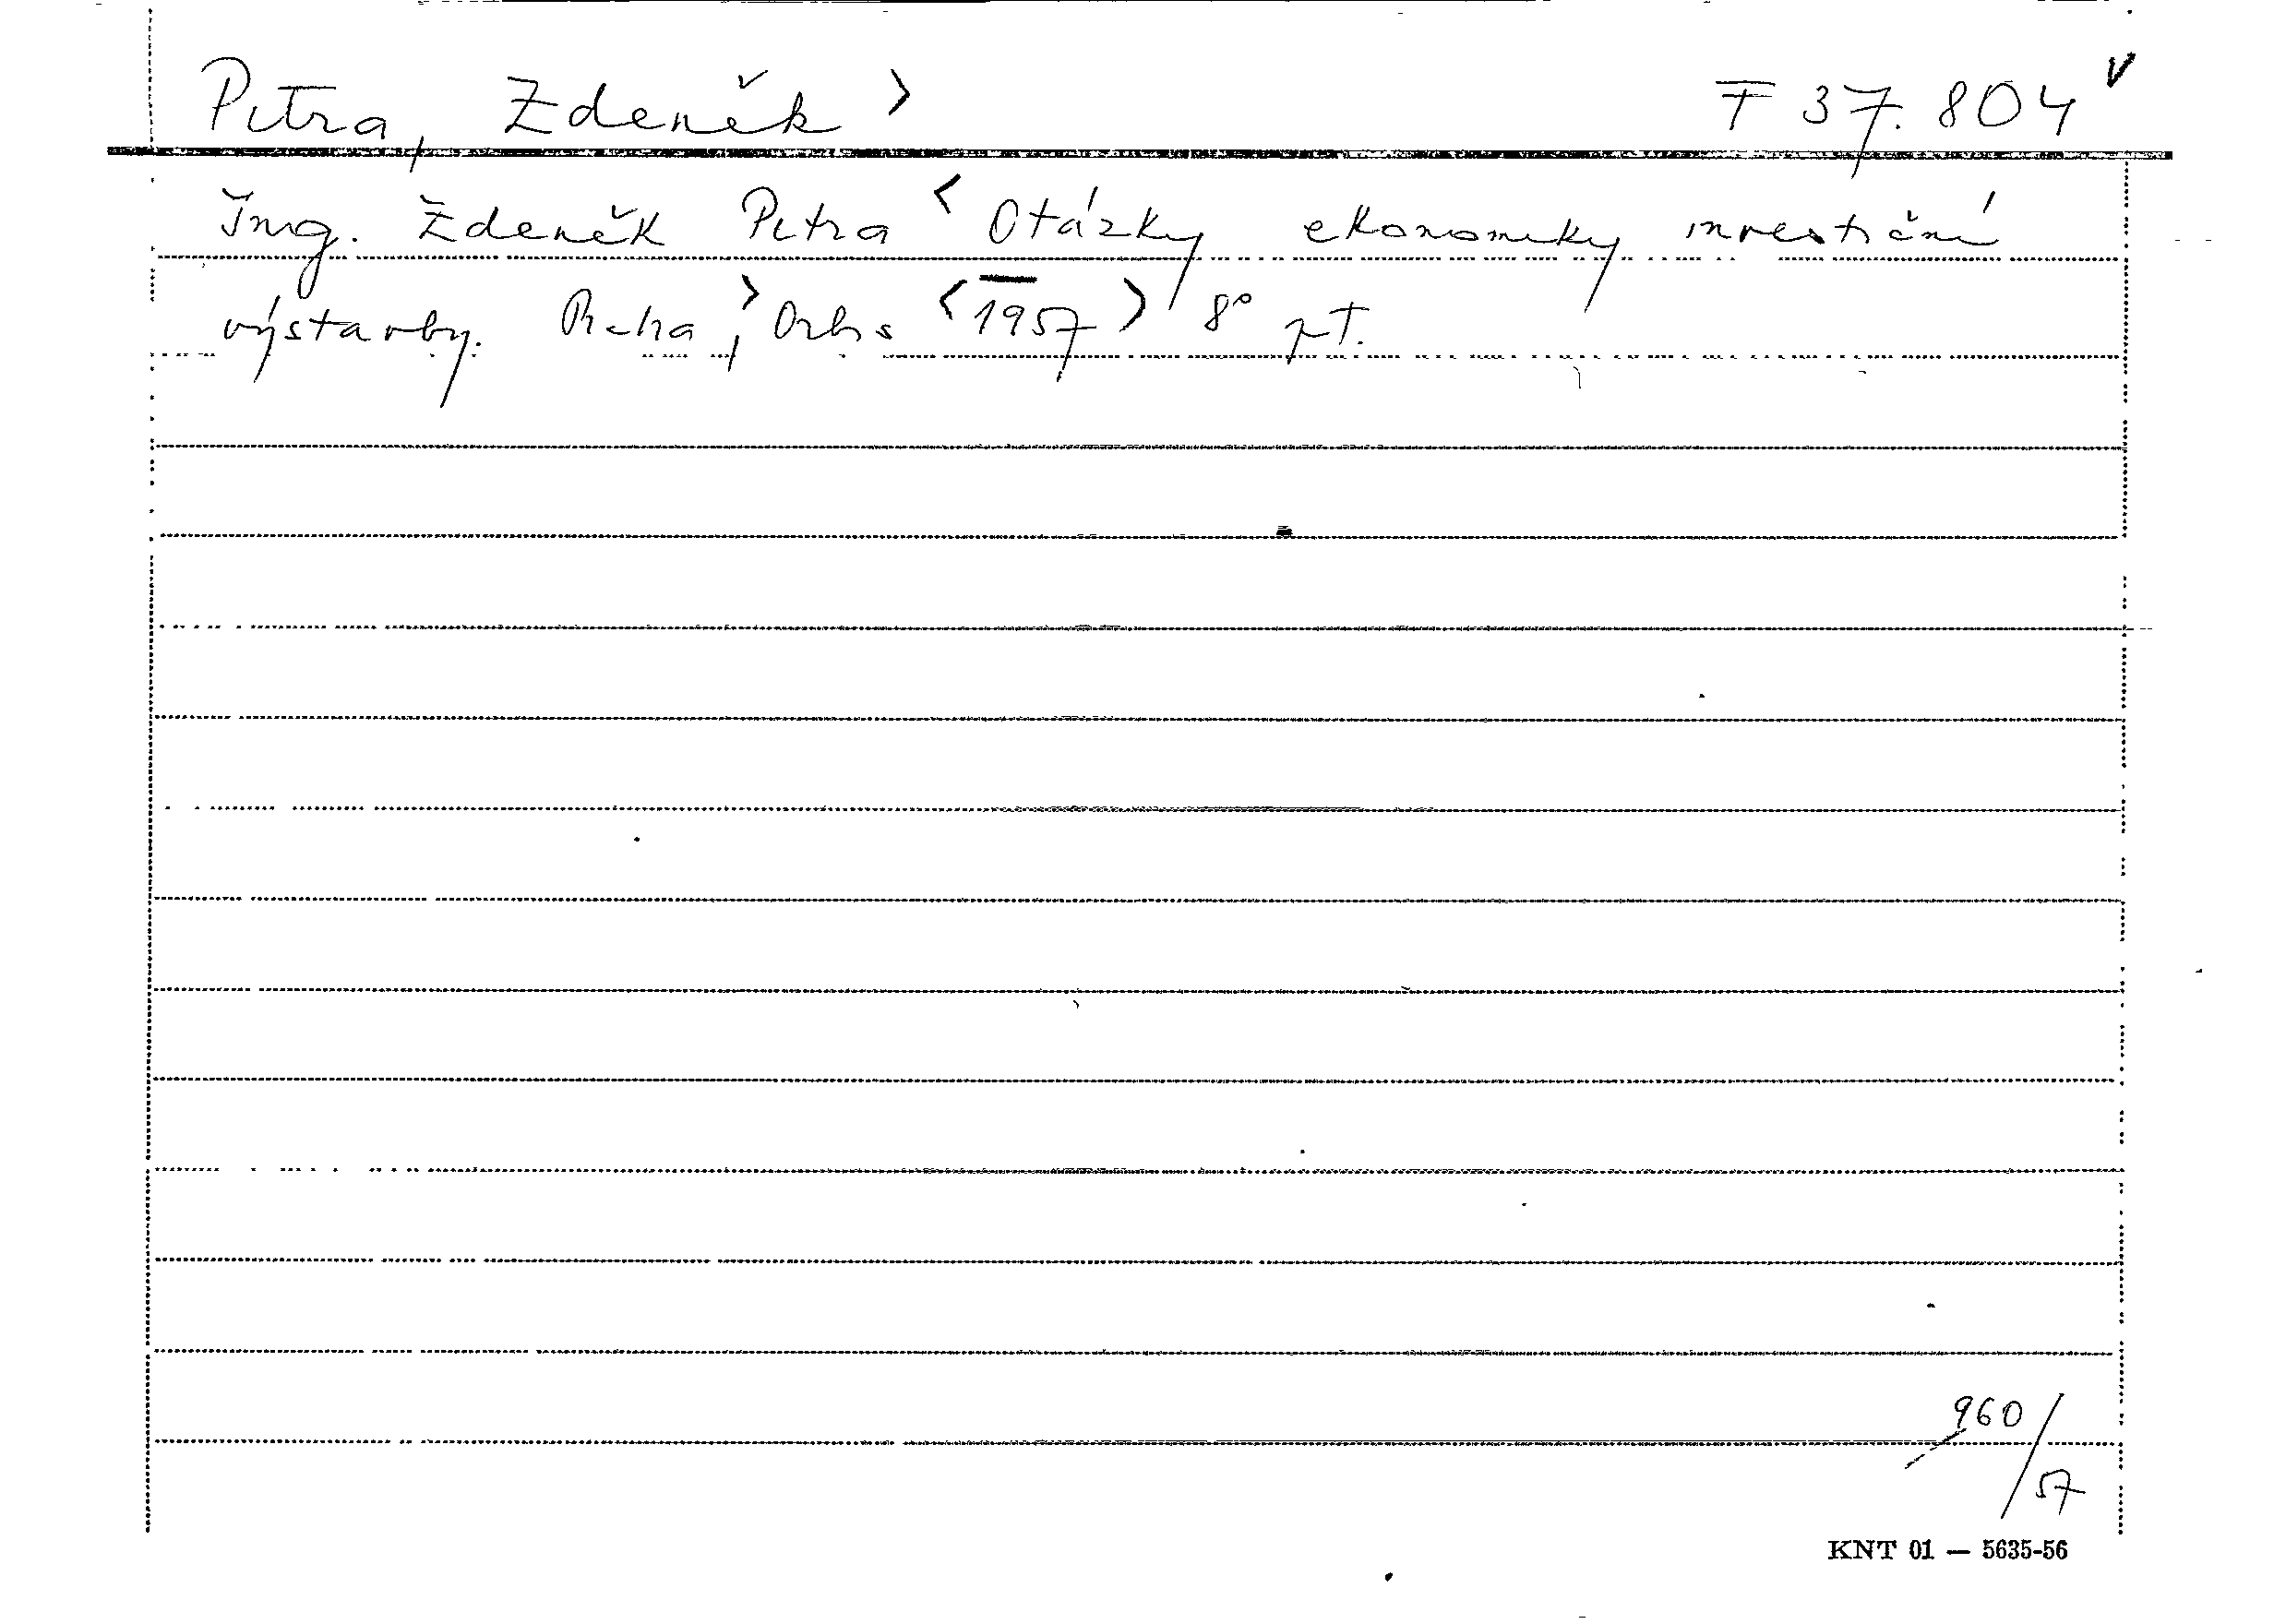 Petra, Zdeněk > F 37.804 v
Ing. Zdeněk Petra < Otázky ekonomiky investiční
výstavby. Praha, > Orbis < 1957 > 8° pt.
960/
57
KNT 01 — 5635-56